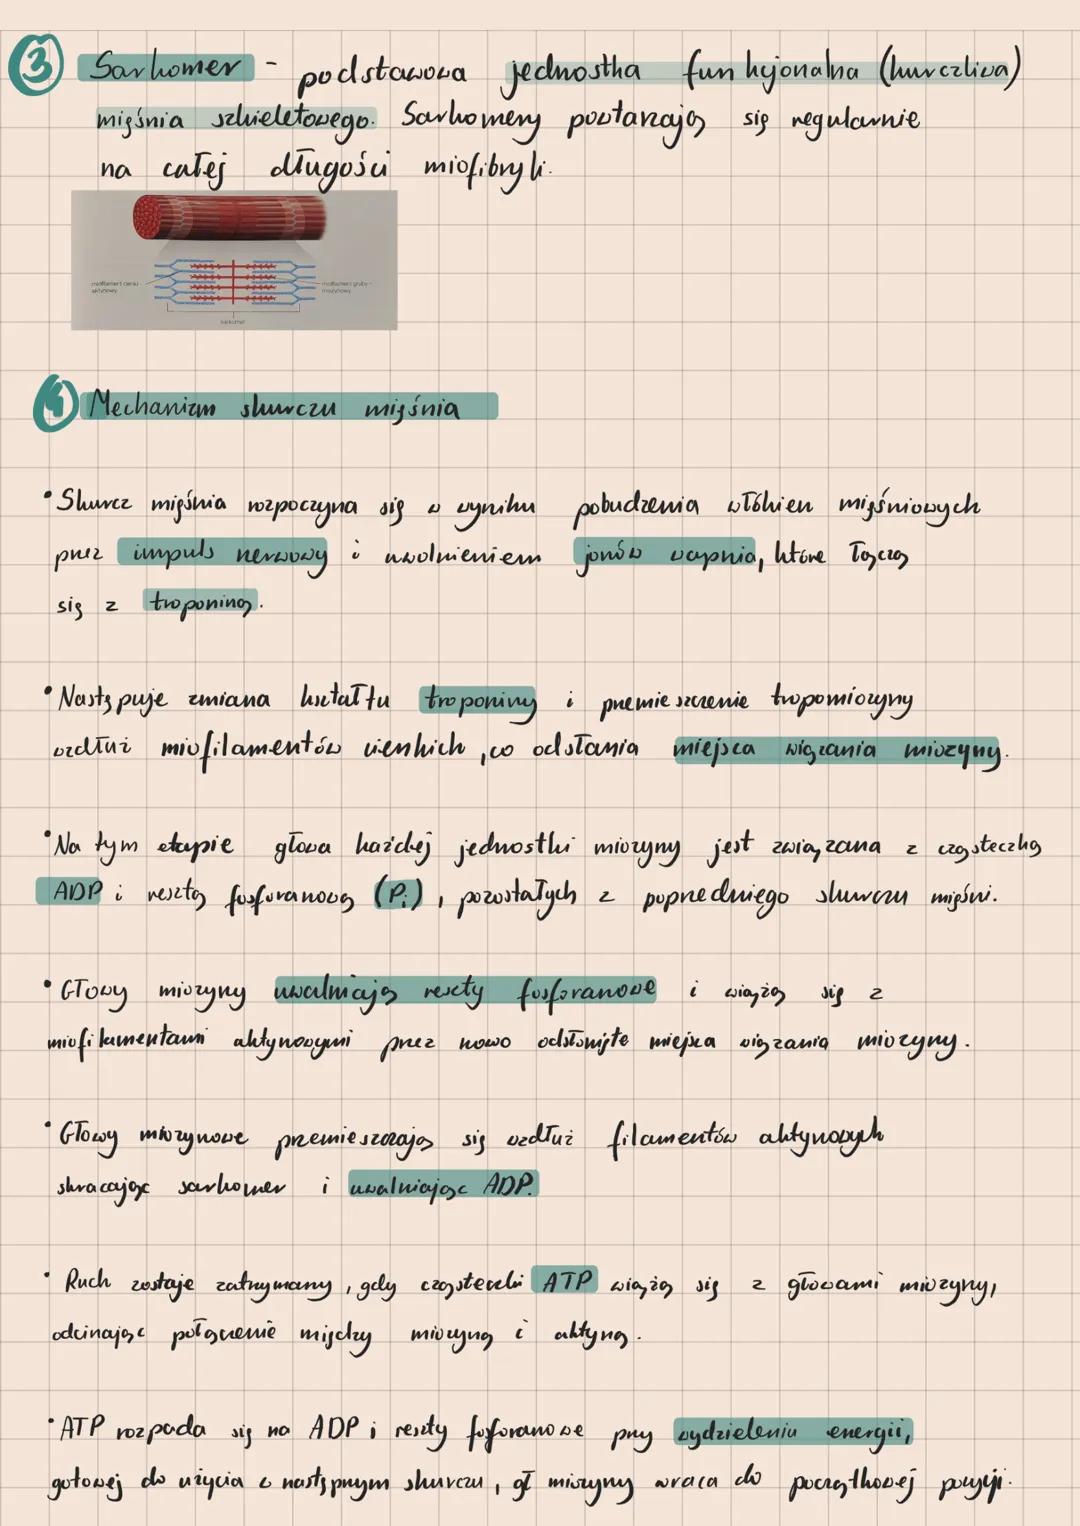 3 Sarkomer - podstawowa jednostka funkcjonalna (kurczliwa)
mięśnia szkieletowego. Sarkomery powtarzają się regularnie
na całej długości miofibryli.
miofilament cienki - aktynowy
miofilament gruby - miozynowy
sarkomer
4 Mechanizm skurczu mięśnia
• Skurcz mięśnia rozpoczyna się w wyniku pobudzenia włókien mięśniowych
przez impuls nerwowy i uwolnieniem jonów wapnia, które łączą
się z troponiną.
• Następuje zmiana kształtu troponiny i przemieszczenie tropomiozyny
wzdłuż miofilamentów cienkich, co odsłania miejsca wiązania miozyny.
• Na tym etapie głowa każdej jednostki miozyny jest związana z cząsteczką
ADP i resztą fosforanową (Pi), pozostałych z poprzedniego skurczu mięśni.
• Głowy miozyny uwalniają reszty fosforanowe i wiążą się z
miofilamentami aktynowymi przez nowo odsłonięte miejsca wiązania miozyny.
• Głowy miozynowe przemieszczają się wzdłuż filamentów aktynowych
skracając sarkomer i uwalniając ADP.
• Ruch zostaje zatrzymany, gdy cząsteczki ATP wiążą się z głowami miozyny,
odcinając połączenie między miozyną i aktyną.
• ATP rozpada się na ADP i reszty fosforanowe przy wydzieleniu energii,
gotowej do użycia w następnym skurczu, gł miozyny wraca do początkowej pozycji.